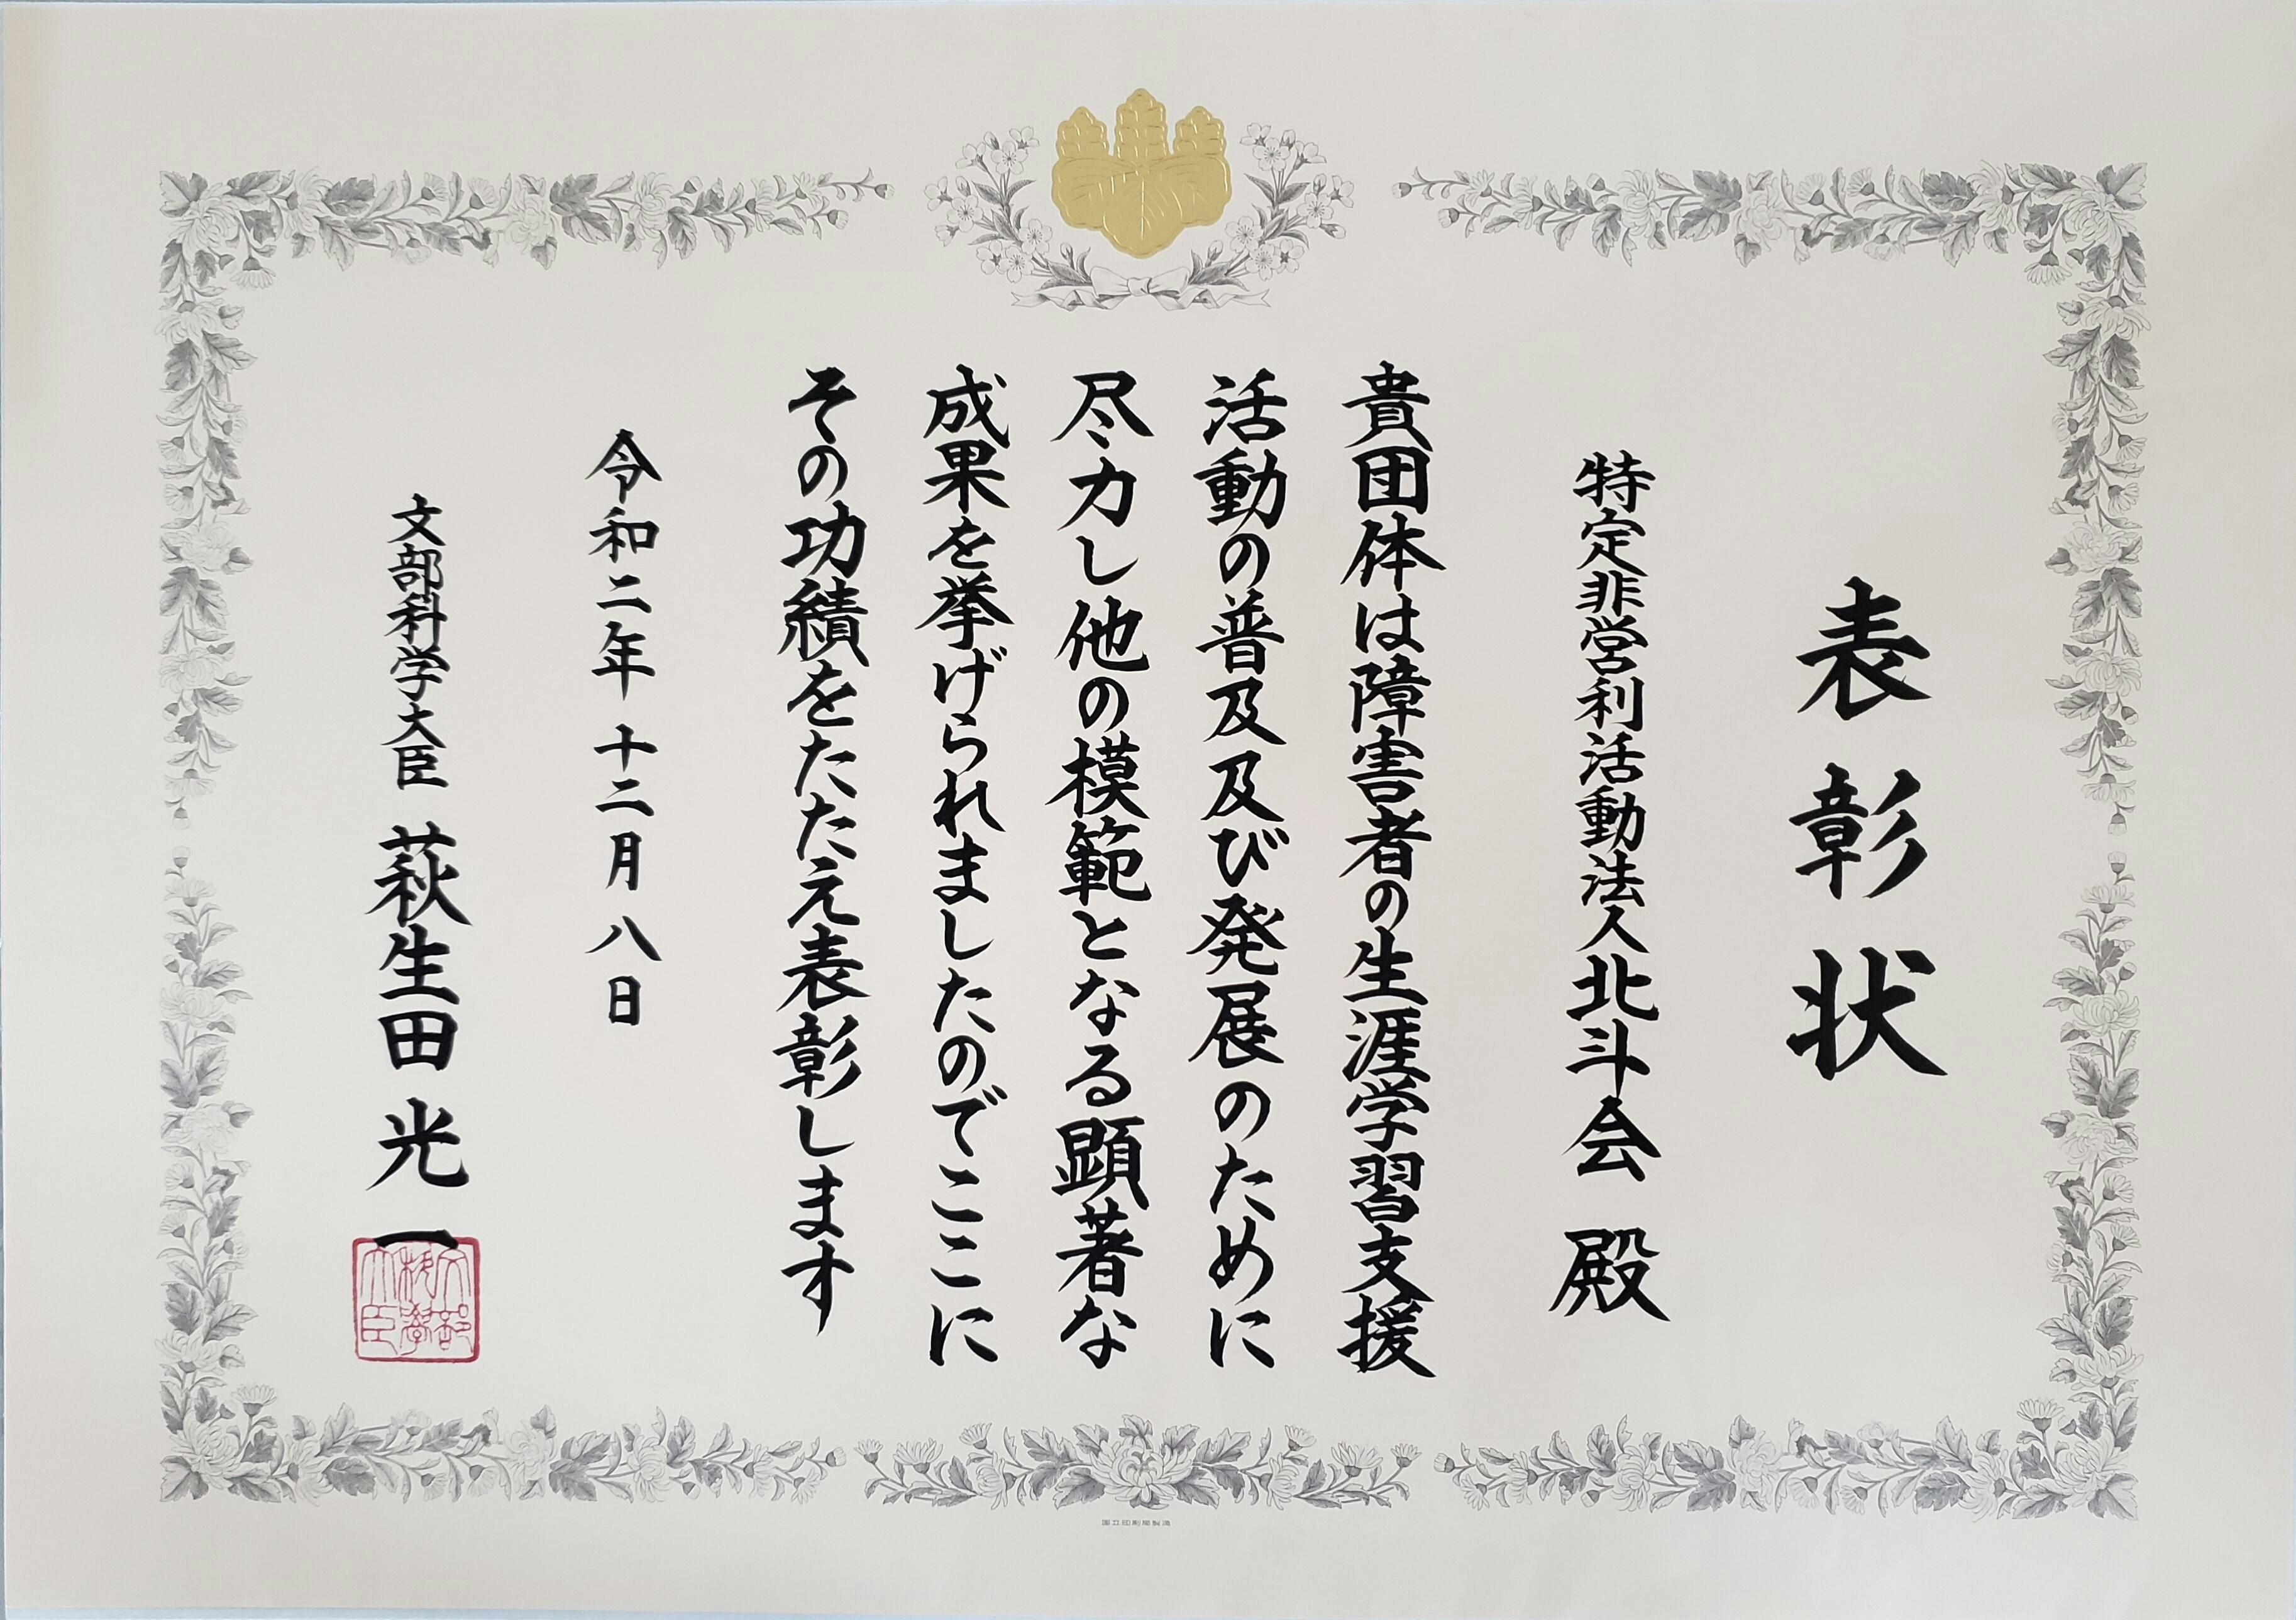 表彰状
特定非営利活動法人北斗会 殿
貴団体は障害者の生涯学習支援
活動の普及及び発展のために
尽力し他の模範となる顕著な
成果を挙げられましたのでここに
その功績をたたえ表彰します
令和二年十二月八日
文部科学大臣 萩生田光一
文部科学大臣
国立印刷局製造